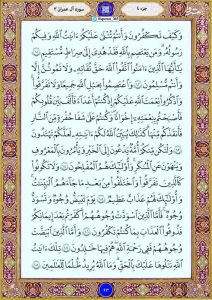 جزء ٤
سورة آل عمران ٣
وَكَيْفَ تَكْفُرُونَ وَأَنتُمْ تُتْلَىٰ عَلَيْكُمْ ءَايَٰتُ ٱللَّهِ وَفِيكُمْ
رَسُولُهُۥ وَمَن يَعْتَصِم بِٱللَّهِ فَقَدْ هُدِيَ إِلَىٰ صِرَٰطٍ مُّسْتَقِيمٍ
يَٰٓأَيُّهَا ٱلَّذِينَ ءَامَنُوا۟ ٱتَّقُوا۟ ٱللَّهَ حَقَّ تُقَاتِهِۦ وَلَا تَمُوتُنَّ إِلَّا
وَأَنتُم مُّسْلِمُونَ وَٱعْتَصِمُوا۟ بِحَبْلِ ٱللَّهِ جَمِيعًا وَلَا تَفَرَّقُوا۟
وَٱذْكُرُوا۟ نِعْمَتَ ٱللَّهِ عَلَيْكُمْ إِذْ كُنتُمْ أَعْدَآءً فَأَلَّفَ بَيْنَ قُلُوبِكُمْ
فَأَصْبَحْتُم بِنِعْمَتِهِۦٓ إِخْوَٰنًا وَكُنتُمْ عَلَىٰ شَفَا حُفْرَةٍ مِّنَ ٱلنَّارِ
فَأَنقَذَكُم مِّنْهَا كَذَٰلِكَ يُبَيِّنُ ٱللَّهُ لَكُمْ ءَايَٰتِهِۦ لَعَلَّكُمْ تَهْتَدُونَ
وَلْتَكُن مِّنكُمْ أُمَّةٌ يَدْعُونَ إِلَى ٱلْخَيْرِ وَيَأْمُرُونَ بِٱلْمَعْرُوفِ
وَيَنْهَوْنَ عَنِ ٱلْمُنكَرِ وَأُو۟لَٰٓئِكَ هُمُ ٱلْمُفْلِحُونَ وَلَا تَكُونُوا۟
كَٱلَّذِينَ تَفَرَّقُوا۟ وَٱخْتَلَفُوا۟ مِنۢ بَعْدِ مَا جَآءَهُمُ ٱلْبَيِّنَٰتُ
وَأُو۟لَٰٓئِكَ لَهُمْ عَذَابٌ عَظِيمٌ يَوْمَ تَبْيَضُّ وُجُوهٌ وَتَسْوَدُّ
وُجُوهٌ فَأَمَّا ٱلَّذِينَ ٱسْوَدَّتْ وُجُوهُهُمْ أَكَفَرْتُم بَعْدَ إِيمَٰنِكُمْ
فَذُوقُوا۟ ٱلْعَذَابَ بِمَا كُنتُمْ تَكْفُرُونَ وَأَمَّا ٱلَّذِينَ ٱبْيَضَّتْ
وُجُوهُهُمْ فَفِى رَحْمَةِ ٱللَّهِ هُمْ فِيهَا خَٰلِدُونَ تِلْكَ ءَايَٰتُ
ٱللَّهِ نَتْلُوهَا عَلَيْكَ بِٱلْحَقِّ وَمَا ٱللَّهُ يُرِيدُ ظُلْمًا لِّلْعَٰلَمِينَ
٦٣